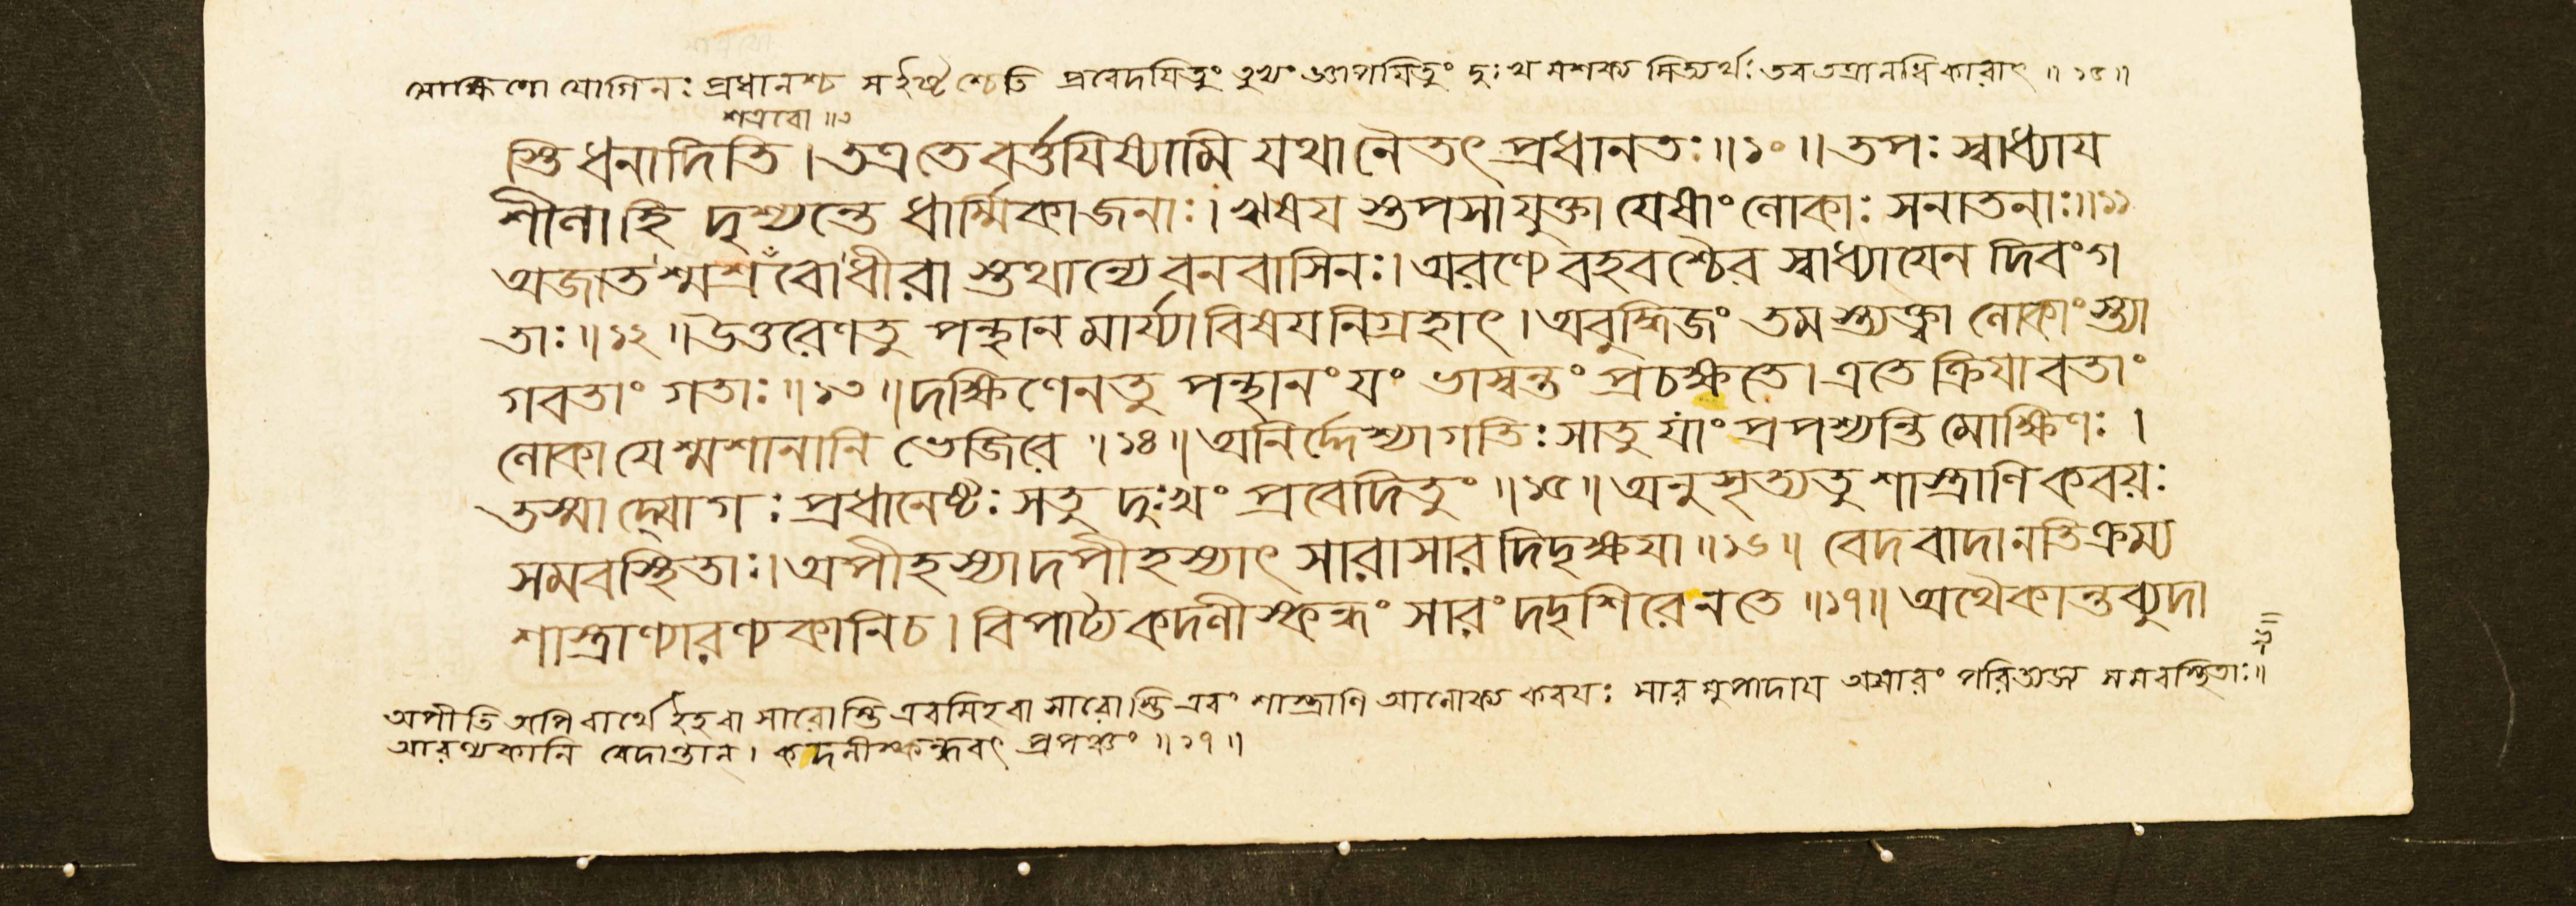 মোক্ষিণো যোগিনঃ প্রধানশ্চ সইষ্টশ্চেতি প্রবেদযিতুং দুঃখ মশক্য মিত্যর্থঃ তব তত্রানধিকারাৎ ॥ ১৫ ॥
শত্রবো ॥৩
স্তি ধনাদিতি । তত্রতে বর্ত্তযিষ্যামি যথানৈতৎ প্রধানতঃ ॥ ১০ ॥ তপঃ স্বাধ্যায
শীলাহি দৃশ্যন্তে ধার্ম্মিকাজনাঃ । ঋষয স্তপসাযুক্তা যেষাং লোকাঃ সনাতনাঃ ॥ ১১
অজাতশ্মশ্রবোধীরা স্তথান্যেবনবাসিনঃ । অরণ্যেবহবশ্চৈব স্বাধ্যাযেন দিবংগ
তাঃ ॥ ১২ ॥ উত্তরেণতু পন্থান মার্য্যাবিষযনিগ্রহাৎ । অবুদ্ধিজং তমস্ত্যক্ত্বা লোকাংস্ত্যা
গবতাং গতাঃ ॥ ১৩ ॥ দক্ষিণেনতু পন্থানং যং ভাস্বন্তং প্রচক্ষতে । এতে ক্রিযাবতাং
লোকা যেশ্মশানানি ভেজিরে ॥ ১৪ ॥ অনির্দ্দেশ্যাগতিঃ সাতু যাং প্রপশ্যন্তি মোক্ষিণঃ ।
তস্মাদ্যোগঃ প্রধানেষ্টঃ সতু দুঃখং প্রবেদিতুং ॥ ১৫ ॥ অনুসৃত্যতু শাস্ত্রাণি কবয়ঃ
সমবস্থিতাঃ । অপীহস্যাদপীহস্যাৎ সারাসারদিদৃক্ষযা ॥ ১৬ ॥ বেদবাদানতিক্রম্য
শাস্ত্রাণ্যারণ্যকানিচ । বিপাট্যকদলীস্কন্ধং সারং দদৃশিরেনতে ॥ ১৭ ॥ অথৈকান্তব্যুদা
অপীতি অপি বার্থে ইহবা সারোস্তি এবমিহবা সারোস্তি এবং শাস্ত্রাণি আলোক্য কবযঃ সার মুপাদায অসারং পরিত্যজ্য সমবস্থিতাঃ ॥ ১৬ ॥
আরণ্যকানি বেদান্তান্ । কদলীস্কন্ধবৎ প্রপঞ্চং ॥ ১৭ ॥